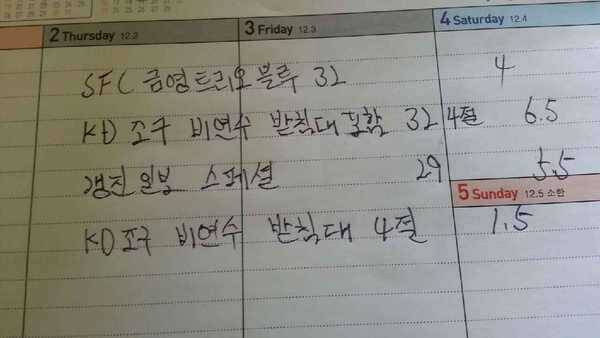 2 Thursday 12.2 3 Friday 12.3 4 Saturday 12.4
SFC 금영트리오 블루 32 4
KD 조구 비연수 받침대 포함 32 4절 6.5
경진 일봉 스페셜 29 5.5
5 Sunday 12.5 소한
KD 조구 비연수 받침대 4절 1.5